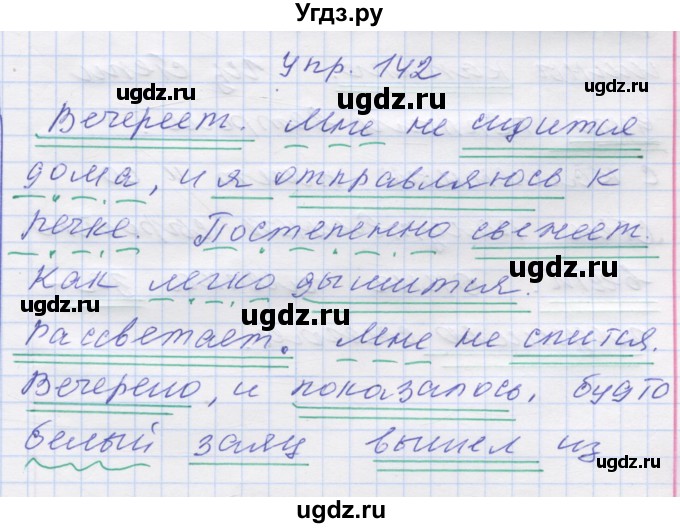 Угдз.ру
Упр. 142
ugdz.ru ugdz.ru
Вечереет. Мне не сидится
ugdz.ru
дома, и я отправляюсь к
речке. Постепенно свежеет.
ugdz.ru ugdz.ru
ugdz.ru
Как легко дышится.
ugdz.ru ugdz.ru
Рассветает. Мне не спится.
ugdz.ru
Вечерело, и показалось, будто
ugdz.ru ugdz.ru
белый заяц вышел из
ugdz.ru ugdz.ru